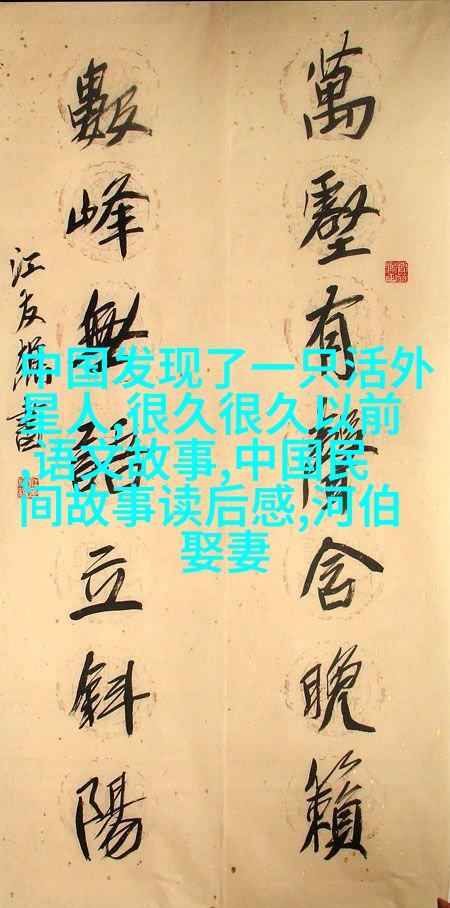 萬壑有聲含晚籟
數峰無語立斜陽
江友樵書
中国发现了一只活外
星人,很久很久以前
,语文故事,中国民
间故事读后感,河伯
娶妻